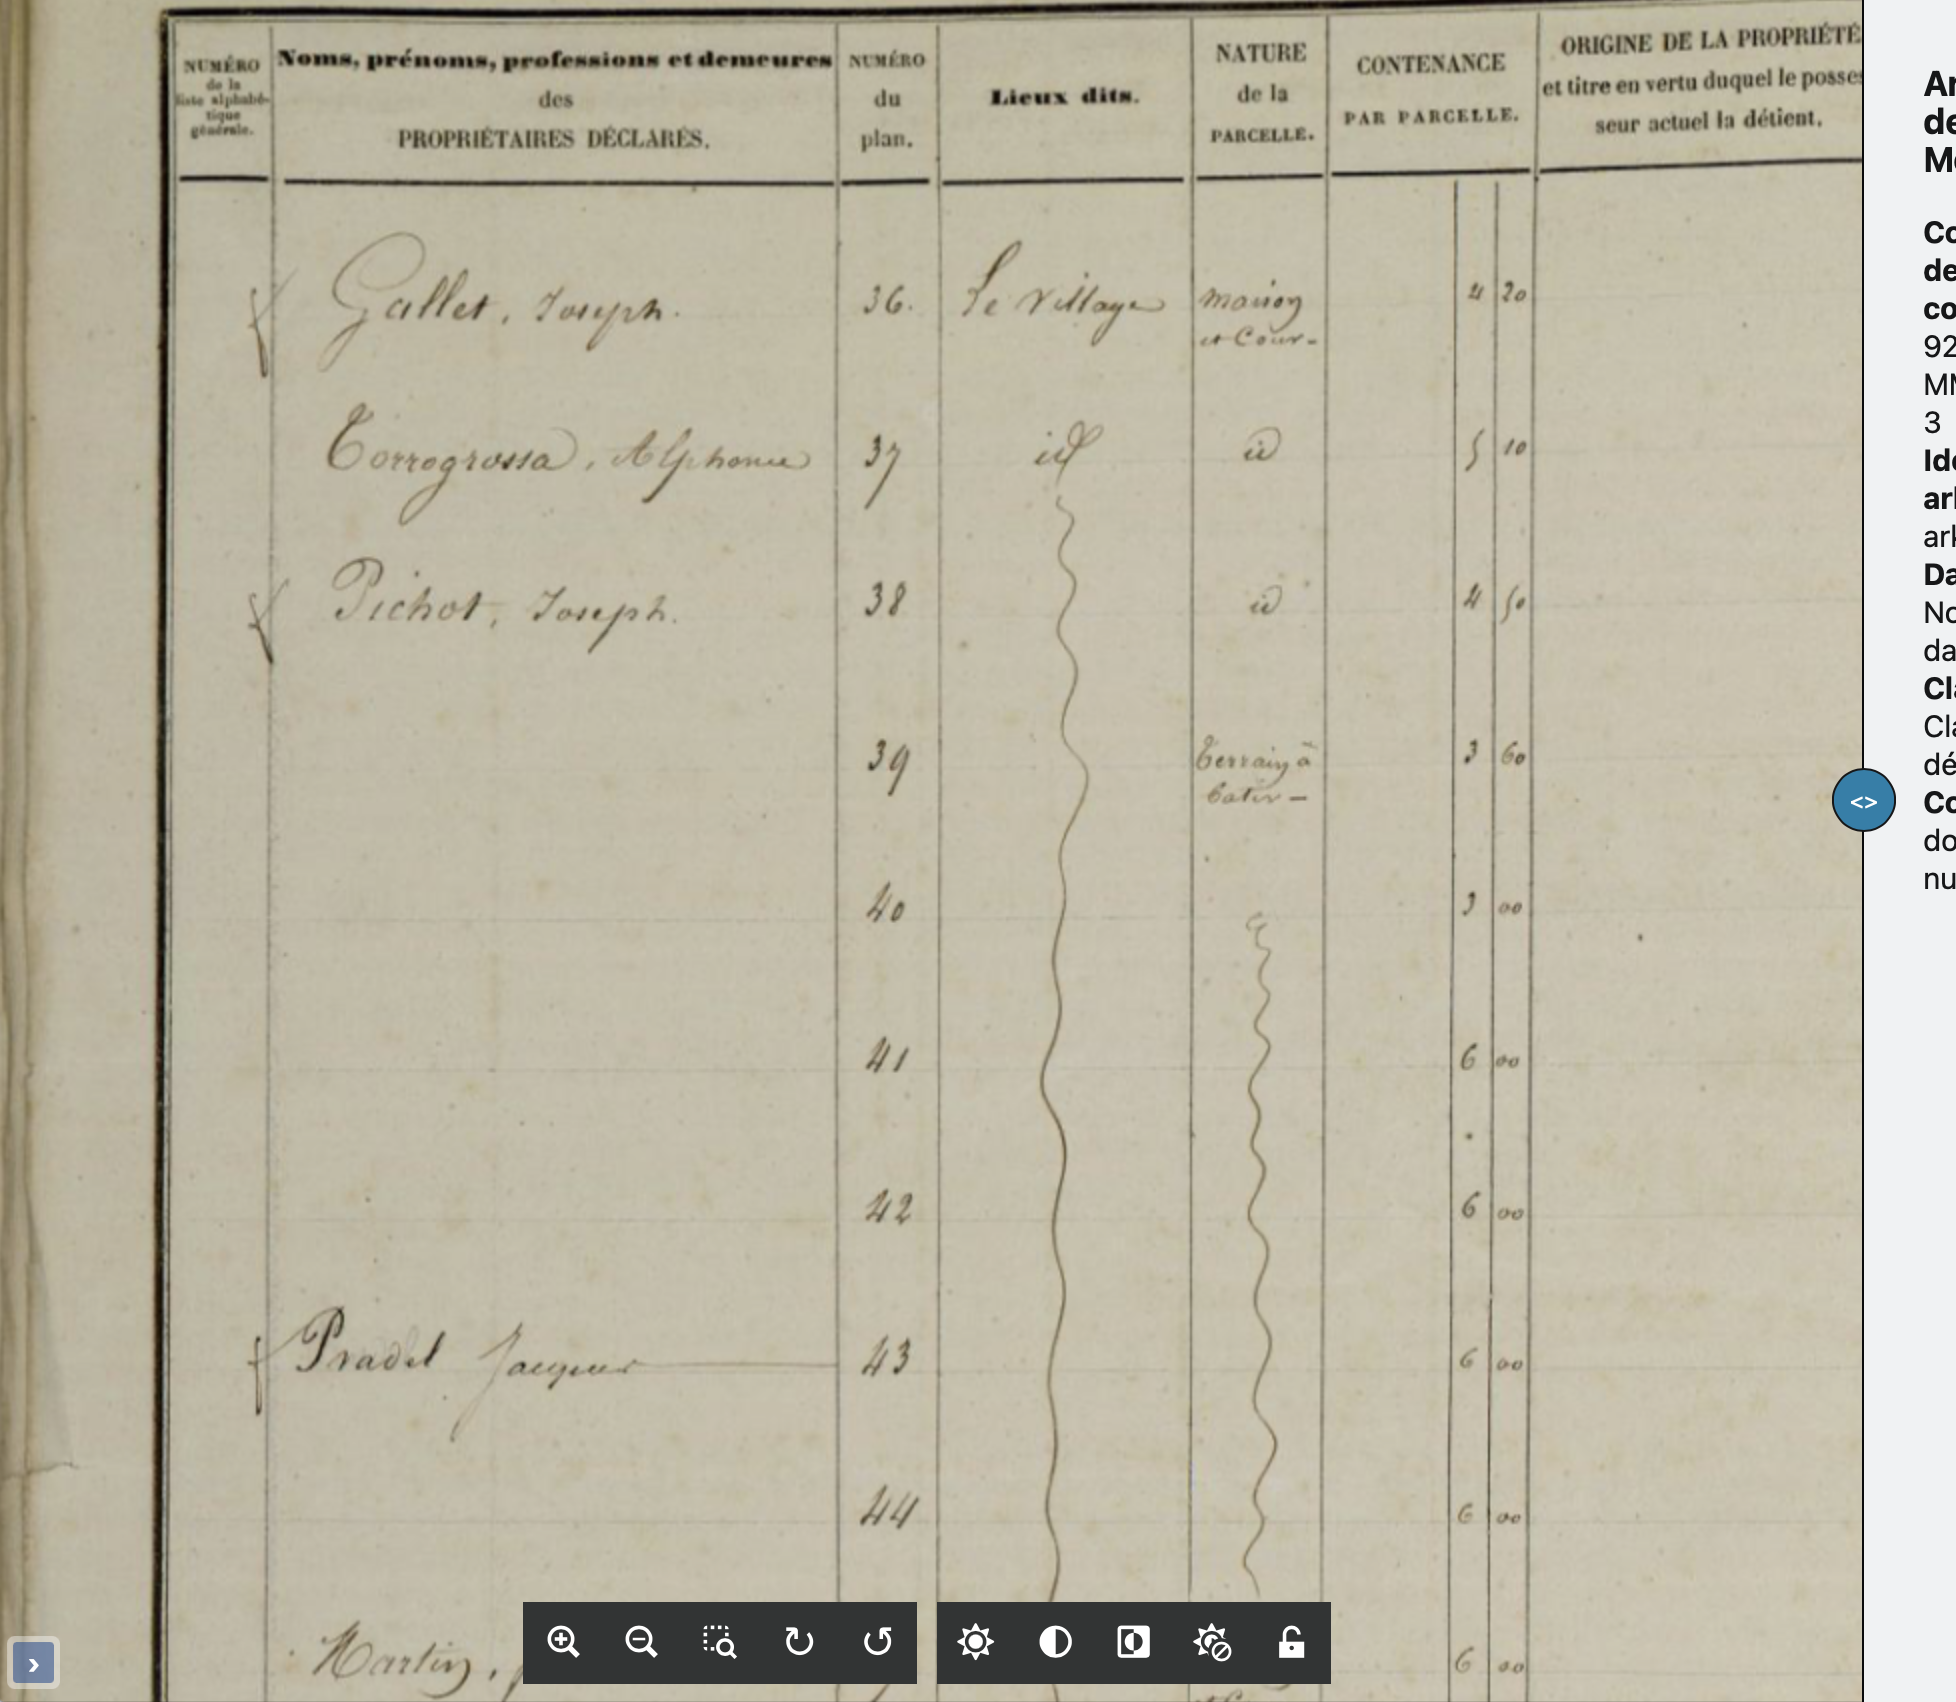 NUMÉRO
de la
liste alphabé-
tique
générale.
Noms, prénoms, professions et demeures
des
PROPRIÉTAIRES DÉCLARÉS.
NUMÉRO
du
plan.
Lieux dits.
NATURE
de la
PARCELLE.
CONTENANCE
PAR PARCELLE.
ORIGINE DE LA PROPRIÉTÉ
et titre en vertu duquel le posses
seur actuel la détient.
Gallet, Joseph. 36. Le Village maison 4 20
et Cour-
Torrogrossa, Alphonse 37 id id 5 10
Pichot, Joseph. 38 id 4 50
39 Terrain à 3 60
batir -
40 3 00
41 6 00
42 6 00
Pradel Jacques 43 6 00
44 6 00
Martin, 6 00
Ar
de
Mo
Co
de
co
92
MM
3
Ide
ark
ark
Da
No
da
Cla
Cla
dé
Co
do
nu
<>